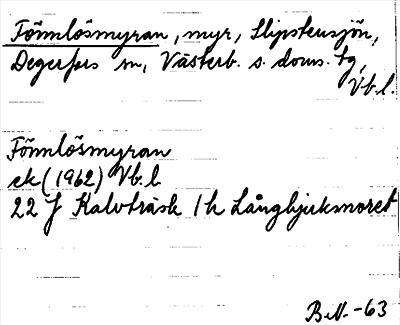 Tönnlösmyran, myr, Slipstensjön,
Degerfors sn, Västerb. s. doms. tg,
Vb. l.
Tönnlösmyran
ek (1962) Vb. l.
22 J Kalvträsk 1h Långbjuksmoret
B.N. -63